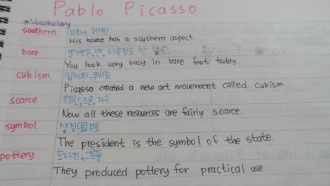 Pablo Picasso.
*Vocabulary
southern
His house has a southern aspect.
bare
You look very busy in bare feet today.
cubism 입체파,
Picasso created a new art movement called cubism.
scarce
Now all these resources are fairly scarce.
symbol 상징
The president is the symbol of the state.
pottery 도자기,
They produced pottery for practical use